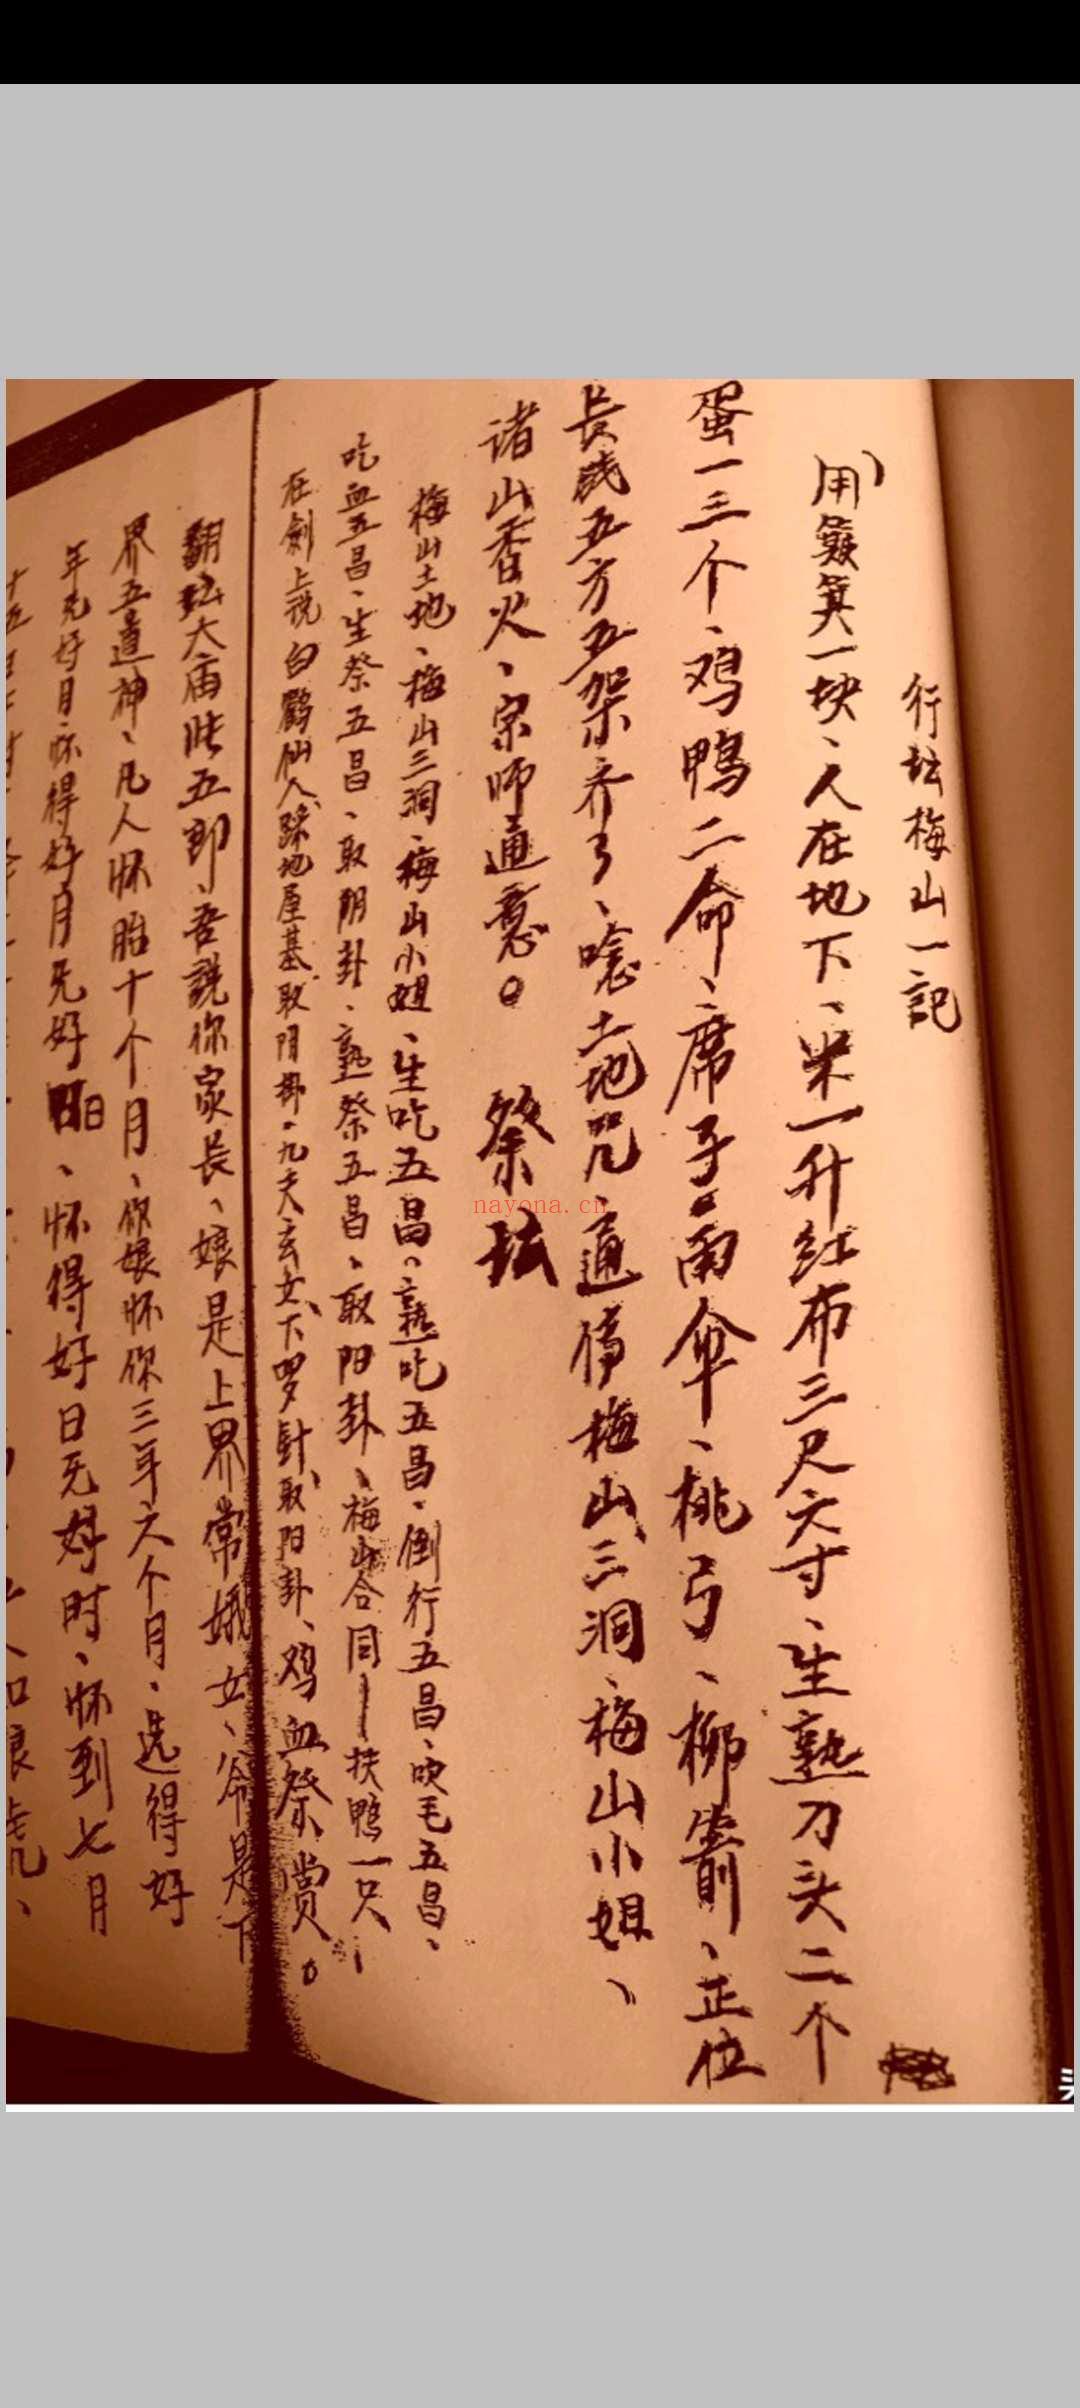 行坛梅山一記
用簸箕一块、人在地下、米一升红布三尺六寸、生熟刀头二个
蛋一三个、鸡鸭二命、席子雨伞、桃弓、柳箭、正位
長钱五方五架齐了、唸土地咒、通傳梅山三洞、梅山小姐、
诸山香火、宗师通意。 祭坛
梅山土地、梅山三洞、梅山小姐、生吃五昌、熟吃五昌、倒行五昌、吹毛五昌、
吃血五昌、生祭五昌、取阴卦、熟祭五昌、取阳卦、梅山合同——扶鸭一只—
在劍上说白鶴仙人、踩地屋基、取阴掛。九天玄女、下罗針、取阳卦、鸡血祭赏。
翻坛大庙張五郎、吾説你家長、娘是上界常娥女、爷是下
界五道神、凡人怀胎十个月、你娘怀你三年六个月、选得好
年无好月、怀得好月无好日、怀得好日无好时、怀到七月
十五
nayona.cn